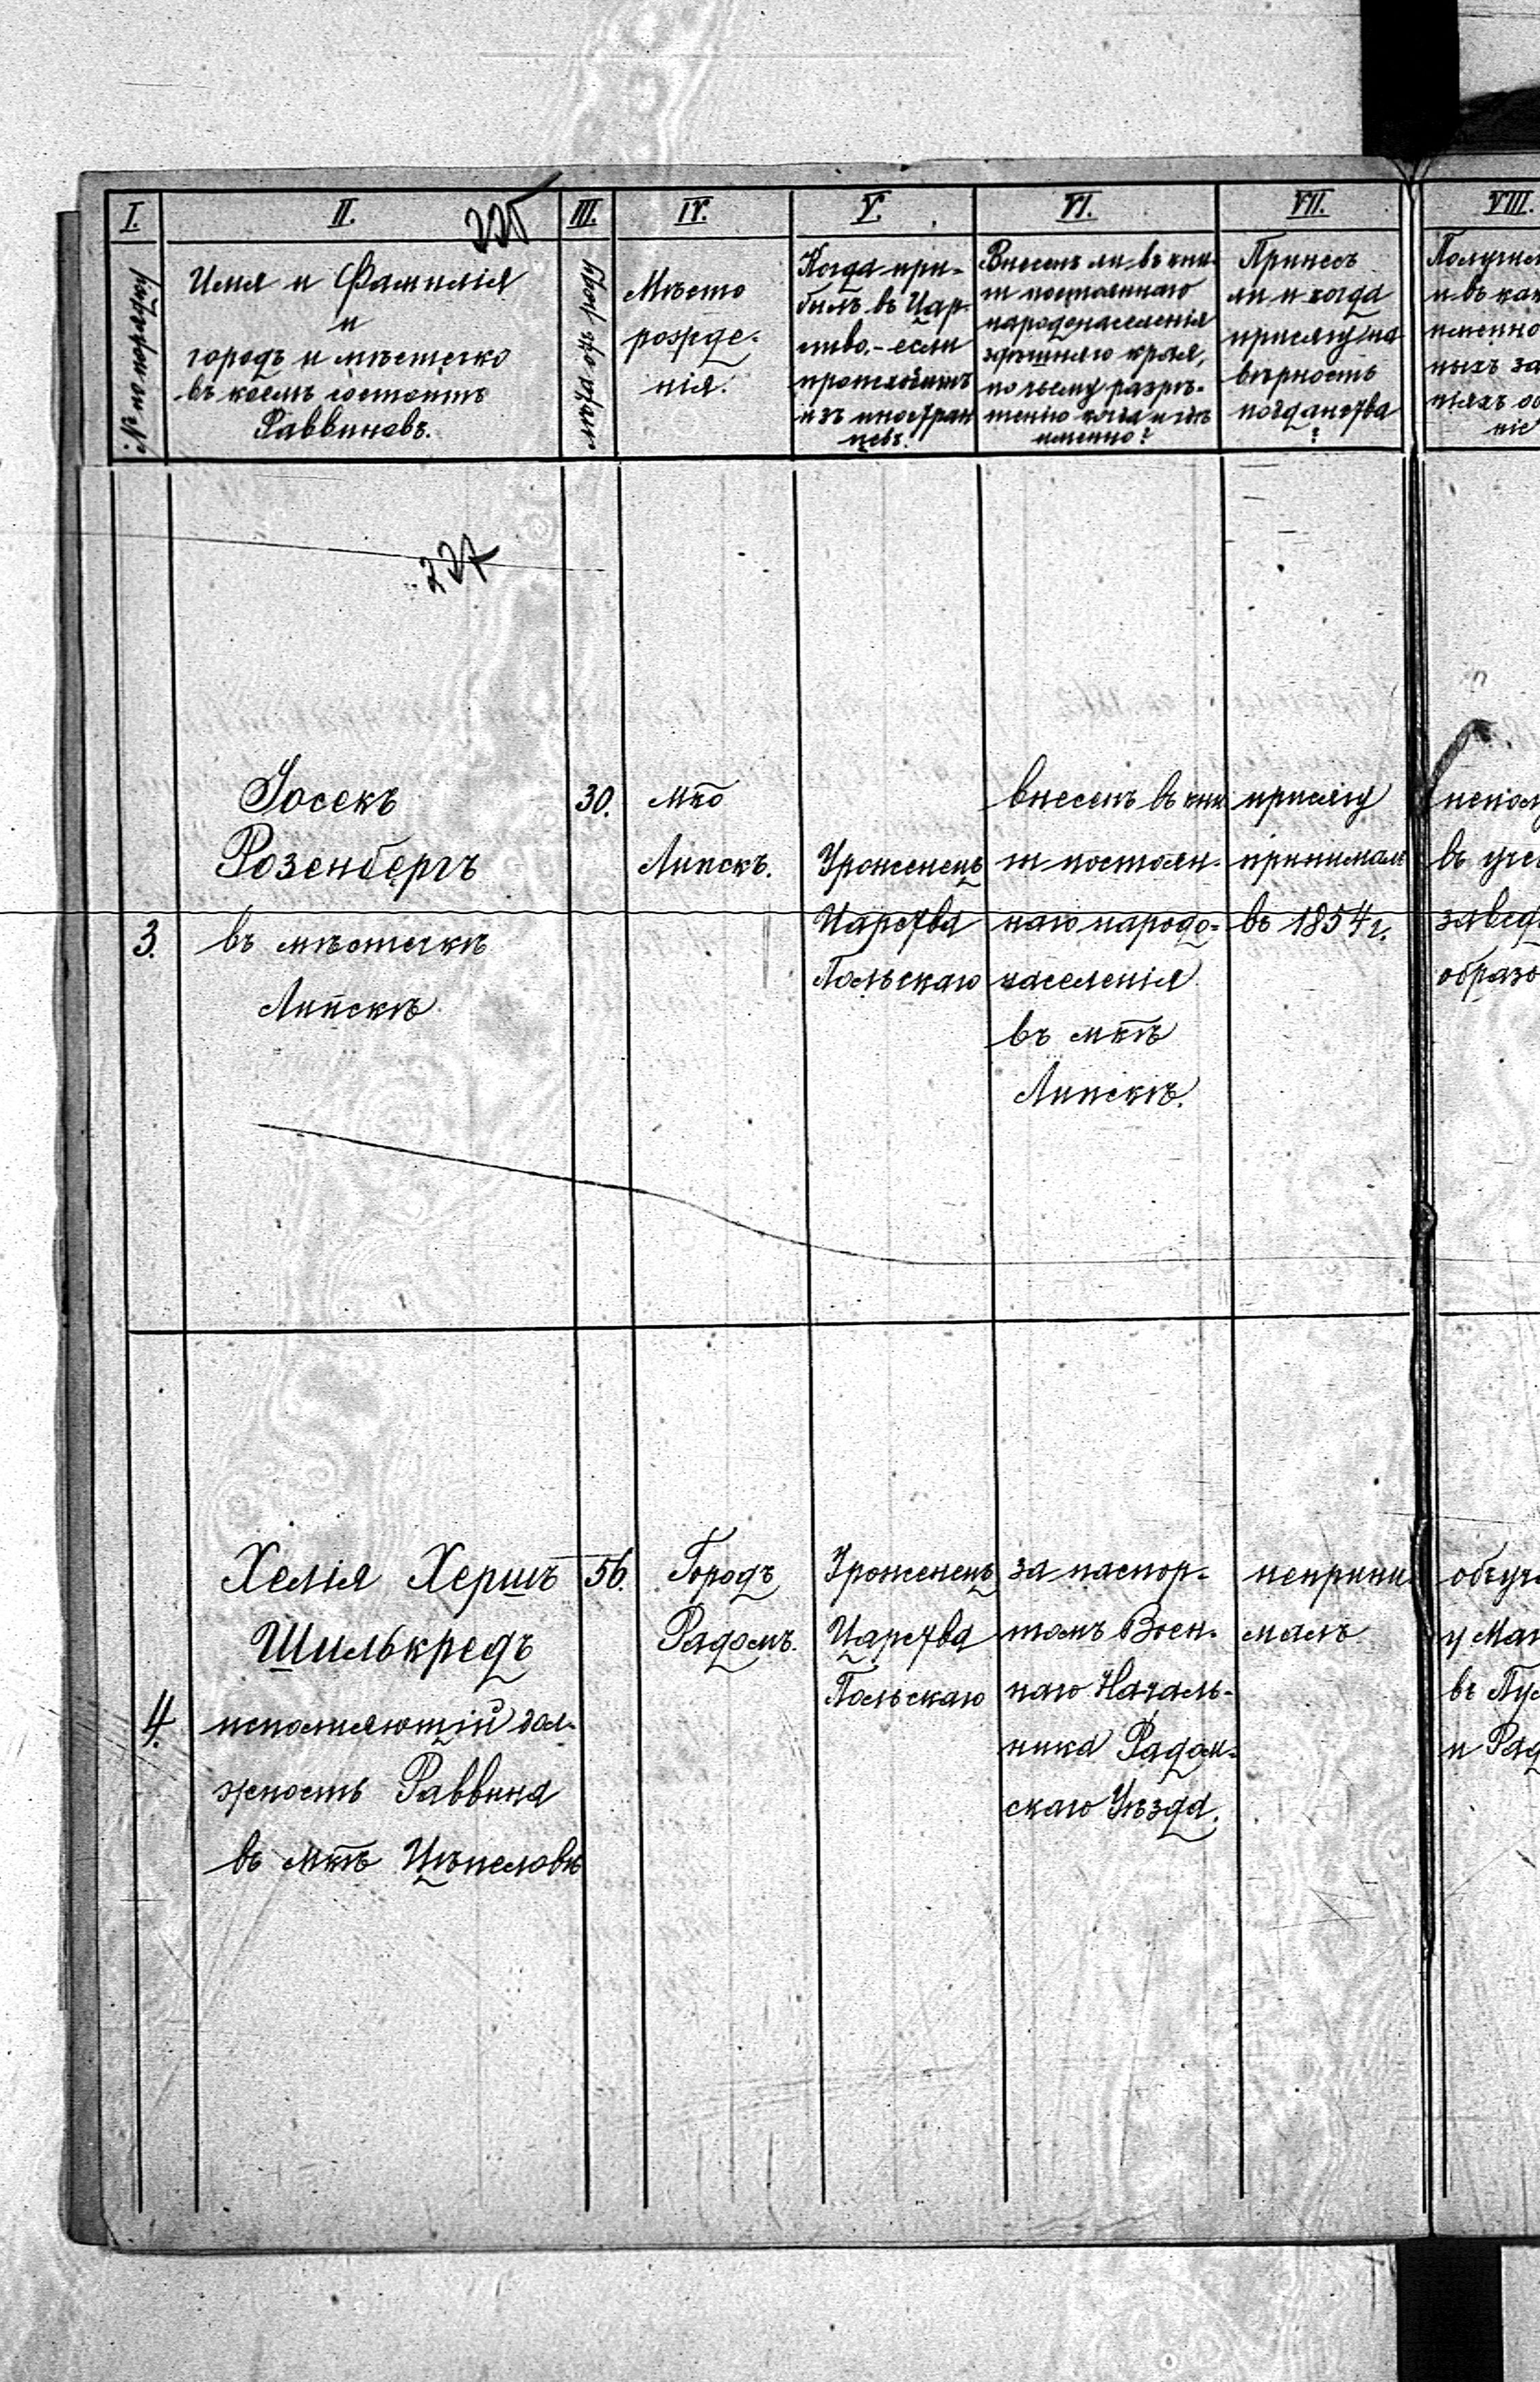 I. II. III. IV. V. VI. VII. VIII.
225
№ по порядку
Имя и Фамилія
и
городъ и мѣстечко
въ коемъ состоитъ
Раввиновъ.
лѣта отъ роду
Мѣсто
рожде-
нія.
Когда при-
былъ въ Цар-
ство.- если
происходитъ
изъ иностран
цевъ.
Внесенъ ли въ кни-
ги постояннаго
народонаселенія
здѣшняго края,
по чьему разрѣ-
шенію когда и гдѣ
именно?
Принесъ
ли и когда
присягу на
вѣрность
подданства
?
Получил
и въ как
именно
ныхъ за
ніяхъ об
ніе
227
3.
Іосекъ
Розенбергъ
въ мѣстечкѣ
Липскѣ
30.
мѣо
Липскъ.
Уроженецъ
Царства
Польскаго
внесенъ въ кни
ги постоян-
наго народо-
населенія
въ мѣѣ
Липскѣ.
присягу
принималъ
въ 1854 г.
непол
въ уче
завед
образо
4.
Хелія Хершъ
Шилькредъ
исполняющій дол-
жность Раввина
въ мѣѣ Цѣпеловѣ
56.
Городъ
Радомъ.
Уроженецъ
Царства
Польскаго
за паспор-
томъ Воен-
наго Началь-
ника Радом-
скаго Уѣзда.
неприни
малъ
обуч
у
въ Пу
и Рад